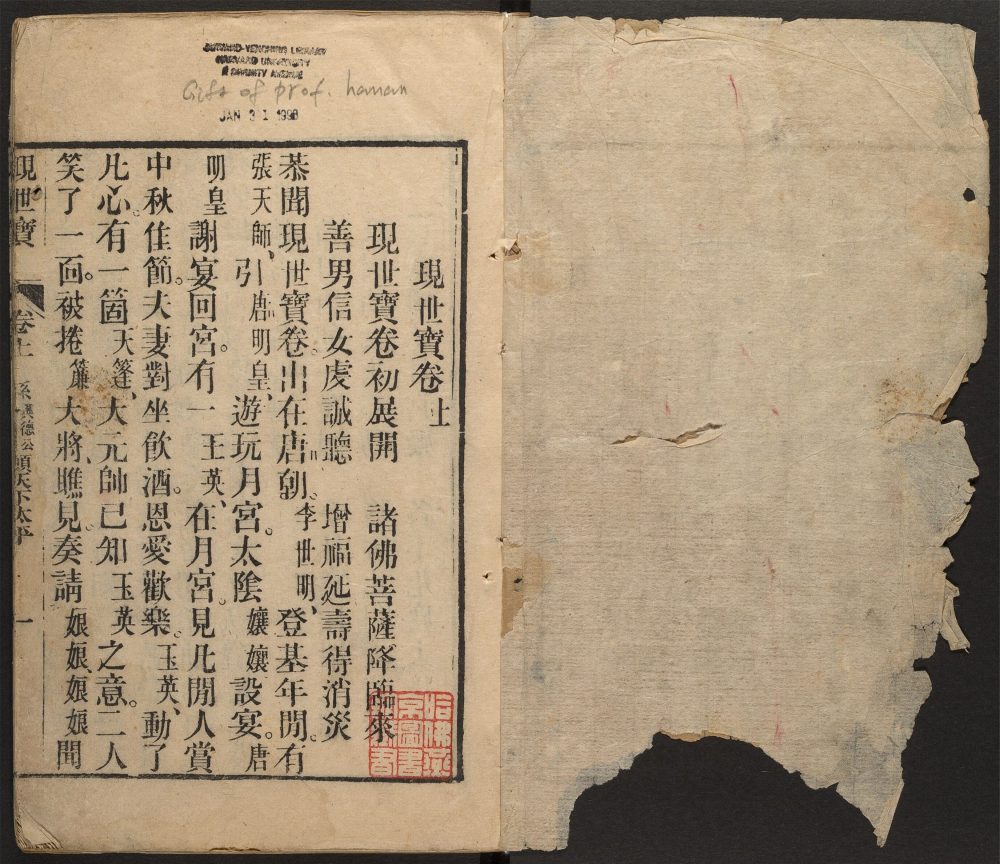 HARVARD-YENCHING LIBRARY
HARVARD UNIVERSITY
2 DIVINITY AVENUE
Gift of prof. hanan
JAN 31 1998
現世寶卷上
現世寶卷初展開　諸佛菩薩降臨來
善男信女虔誠聽　增福延壽得消災
恭聞現世寶卷。出在唐朝。李世明、登基年閒。有
張天師、引唐明皇、遊玩月宮。太陰孃孃設宴。唐
明皇謝宴回宮。有一王英、在月宮。見凢閒人賞
中秋佳節。夫妻對坐飲酒。恩愛歡樂。玉英、動了
凢心。有一箇天篷、大元帥已知玉英之意。二人
笑了一面。被捲簾大將、瞧見。奏請娘娘、娘娘聞
現世寶
卷上
德公
願天下太平
一
哈佛燕京圖書